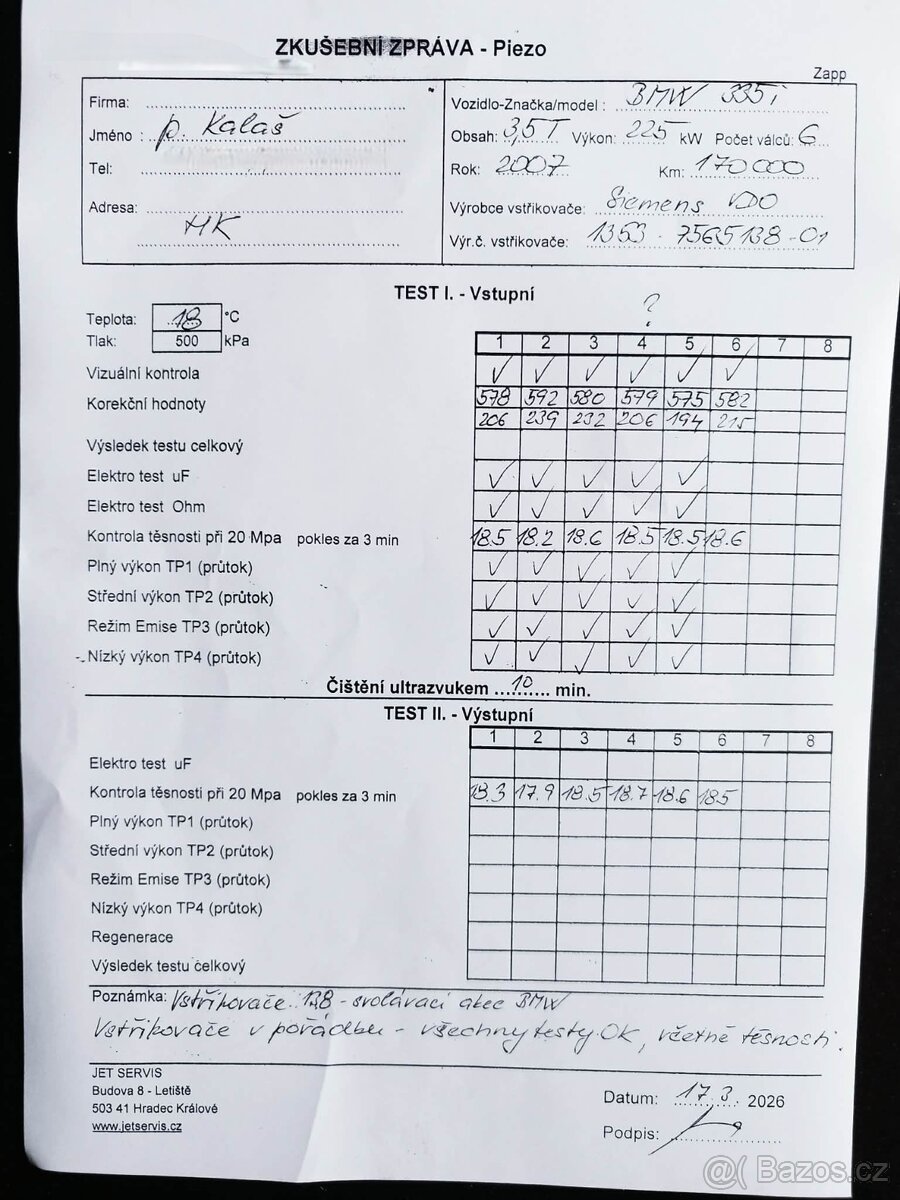 ZKUŠEBNÍ ZPRÁVA - Piezo
Zapp
Firma:
Jméno : p. Kalaš
Tel:
Adresa:
HK
Vozidlo-Značka/model : BMW 335i
Obsah: 3,5T Výkon: 225 kW Počet válců: 6
Rok: 2007 Km: 170000
Výrobce vstřikovače: Siemens VDO
Výr.č. vstřikovače: 1353 - 7565138-01
TEST I. - Vstupní
?
Teplota: 18 °C
Tlak: 500 kPa
1 2 3 4 5 6 7 8
Vizuální kontrola ✓ ✓ ✓ ✓ ✓ ✓
Korekční hodnoty 578 592 580 579 575 582
206 239 232 206 194 215
Výsledek testu celkový
Elektro test uF ✓ ✓ ✓ ✓ ✓
Elektro test Ohm ✓ ✓ ✓ ✓ ✓
Kontrola těsnosti při 20 Mpa pokles za 3 min 18.5 18.2 18.6 18.5 18.5 18.6
Plný výkon TP1 (průtok) ✓ ✓ ✓ ✓ ✓
Střední výkon TP2 (průtok) ✓ ✓ ✓ ✓ ✓
Režim Emise TP3 (průtok) ✓ ✓ ✓ ✓ ✓
Nízký výkon TP4 (průtok) ✓ ✓ ✓ ✓ ✓
Čištění ultrazvukem 10 min.
TEST II. - Výstupní
1 2 3 4 5 6 7 8
Elektro test uF
Kontrola těsnosti při 20 Mpa pokles za 3 min 18.3 17.9 18.5 18.7 18.6 18.5
Plný výkon TP1 (průtok)
Střední výkon TP2 (průtok)
Režim Emise TP3 (průtok)
Nízký výkon TP4 (průtok)
Regenerace
Výsledek testu celkový
Poznámka: Vstřikovače 138 - svolávací akce BMW
Vstřikovače v pořádku - všechny testy OK, včetně těsnosti.
JET SERVIS
Budova 8 - Letiště
503 41 Hradec Králové
www.jetservis.cz
Datum: 17.3. 2026
Podpis:
@( Bazos.cz